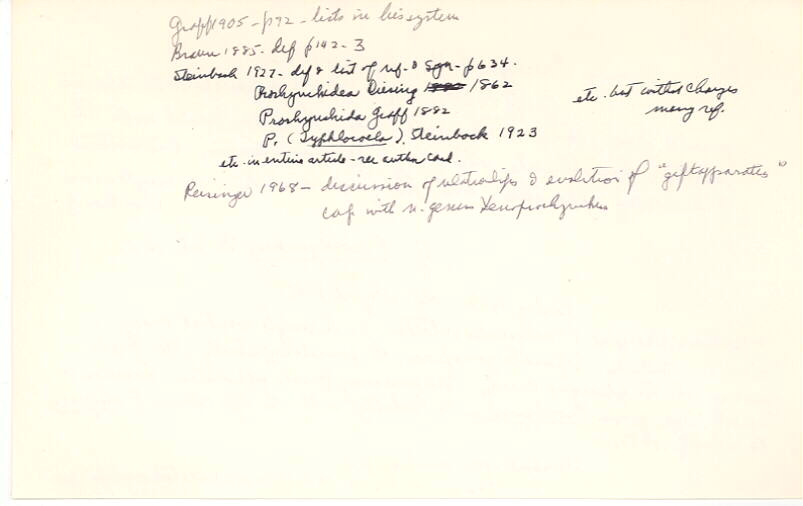 Graff 1905 - p 72 - lists in his system
Braun 1885 - def p 142-3
Steinbock 1927 - def & list of ref. & syn - p 634.
Prorhynchidea Diesing 1862
etc. but without changes
many ref.
Prorhynchida Graff 1882
P. (Typhlocoela), Steinbock 1923
etc. in entire article - see author card.
Reisinger 1968 - discussion of relationships & evolution of "giftapparates"
esp. with n. genus Xenoprorhynchus